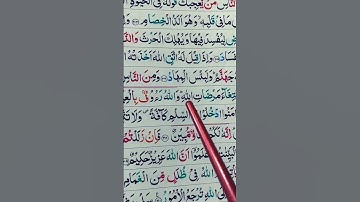 النَّاسِ مَنْ يُّعْجِبُكَ قَوْلُهٗ فِي الْحَيٰوةِ
مَا فِيْ قَلْبِهٖ وَهُوَ اَلَدُّ الْخِصَامِ
لِيُفْسِدَ فِيْهَا وَيُهْلِكَ الْحَرْثَ وَالنَّ
وَاِذَا قِيْلَ لَهُ اتَّقِ اللّٰهَ اَخَذَتْهُ
جَهَنَّمُ وَلَبِئْسَ الْمِهَادُ وَمِنَ النَّاسِ
مَرْضَاتِ اللّٰهِ وَاللّٰهُ رَءُوْفٌ بِالْعِ
مَنُوا ادْخُلُوْا السِّلْمِ كَآفَّةً وَلَا تَ
لَكُمْ مُّبِيْنٌ فَاِنْ زَلَلْ
اَنَّ اللّٰهَ عَزِيْزٌ حَكِيْمٌ
اللّٰهُ فِيْ ظُلَلٍ مِّنَ الْغَمَامِ
تُرْجَعُ الْاُمُوْرُ